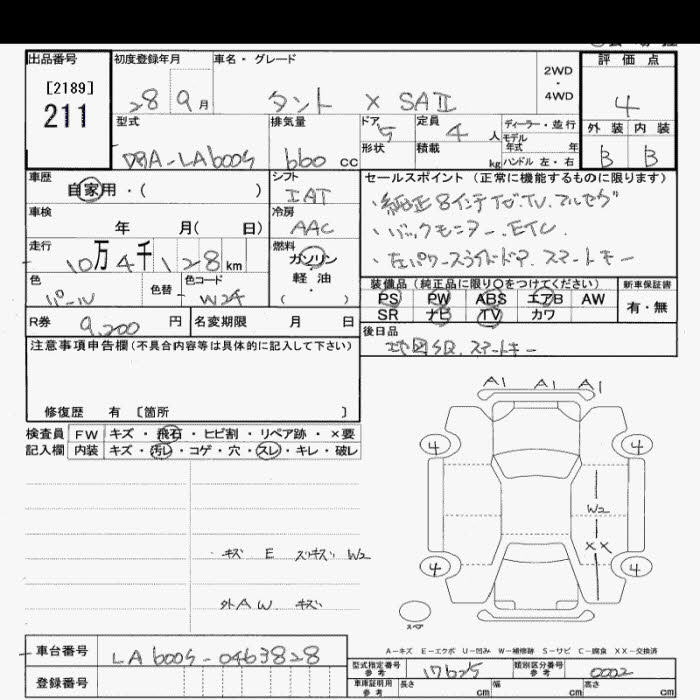 出品番号
[2189]
211
初度登録年月
28 9月
車名・グレード
タント X SAⅡ
2WD
・
4WD
評価点
4
外装 内装
B B
型式
DBA-LA600S
排気量
660 cc
ドア
5
形状
定員
4 人
積載
kg
ディーラー・並行
モデル
年式 年
ハンドル 左・右
車歴
自家用・( )
シフト
IAT
車検
年 月( 日)
冷房
AAC
走行
10万4千128km
燃料
ガソリン
軽油
・( )
色
パール
色替
色コード
W24
R券
9,200 円
名変期限 月 日
セールスポイント (正常に機能するものに限ります)
・純正8インチナビTV.フルセグ
・バックモニター.ETC
・左パワースライドドア.スマートキー
装備品 (純正品に限り○をつけてください)
新車保証書
PS PW ABS エアB AW
SR ナビ TV カワ
有・無
後日品
地図SD.スマートキー
注意事項申告欄(不具合内容等は具体的に記入して下さい)
修復歴 有 [箇所 ]
検査員
記入欄
FW キズ・飛石・ヒビ割・リペア跡・×要
内装 キズ・汚レ・コゲ・穴・スレ・キレ・破レ
A1 A1 A1
4 4
W2
XX
4 4
スペア
キズ E スリキズ W2
外A W キズ
A-キズ E-エクボ U-凹み W-補修跡 S-サビ C-腐食 XX-交換済
車台番号
LA600S-0463828
登録番号
型式指定番号
参考
17625
類別区分番号
参考
0002
車庫証明用
参考
長さ cm
幅 cm
高さ cm